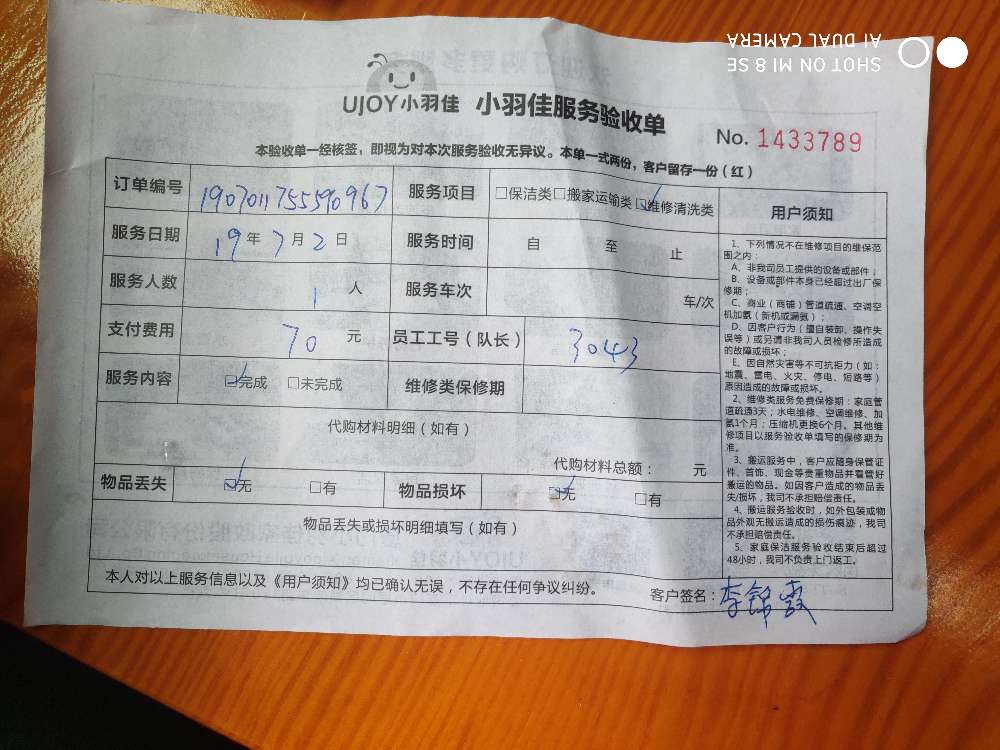 SHOT ON MI 8 SE
AI DUAL CAMERA
UJOY小羽佳 小羽佳服务验收单
No. 1433789
本验收单一经核签，即视为对本次服务验收无异议。本单一式两份，客户留存一份（红）
订单编号 1907011755590967 服务项目 □保洁类□搬家运输类☑维修清洗类
服务日期 19年7月2日 服务时间 自 至 止
服务人数 1人 服务车次 车/次
支付费用 70元 员工工号（队长） 3043
服务内容 ☑完成 □未完成 维修类保修期
代购材料明细（如有）
代购材料总额： 元
物品丢失 ☑无 □有 物品损坏 ☑无 □有
物品丢失或损坏明细填写（如有）
本人对以上服务信息以及《用户须知》均已确认无误，不存在任何争议纠纷。
客户签名：李锦霞
用户须知
1、下列情况不在维修项目的维保范
围之内：
A、非我司员工提供的设备或部件；
B、设备或部件本身已经超过出厂保
修期；
C、商业（商铺）管道疏通、空调空
机加氨（新机或漏氨）；
D、因客户行为（擅自装卸、操作失
误等）或另请非我司人员检修所造成
的故障或损坏；
E、因自然灾害等不可抗拒力（如：
地震、雷电、火灾、停电、短路等）
原因造成的故障或损坏。
2、维修类服务免费保修期：家庭管
道疏通3天；水电维修、空调维修、加
氨1个月；压缩机更换6个月。其他维
修项目以服务验收单填写的保修期为
准。
3、搬运服务中，客户应随身保管证
件、首饰、现金等贵重物品并看管好
搬运的物品。如因客户造成的物品丢
失/损坏，我司不承担赔偿责任。
4、搬运服务验收时，如外包装或物
品外观无搬运造成的损伤痕迹，我司
不承担赔偿责任。
5、家庭保洁服务验收结束后超过
48小时，我司不负责上门返工。